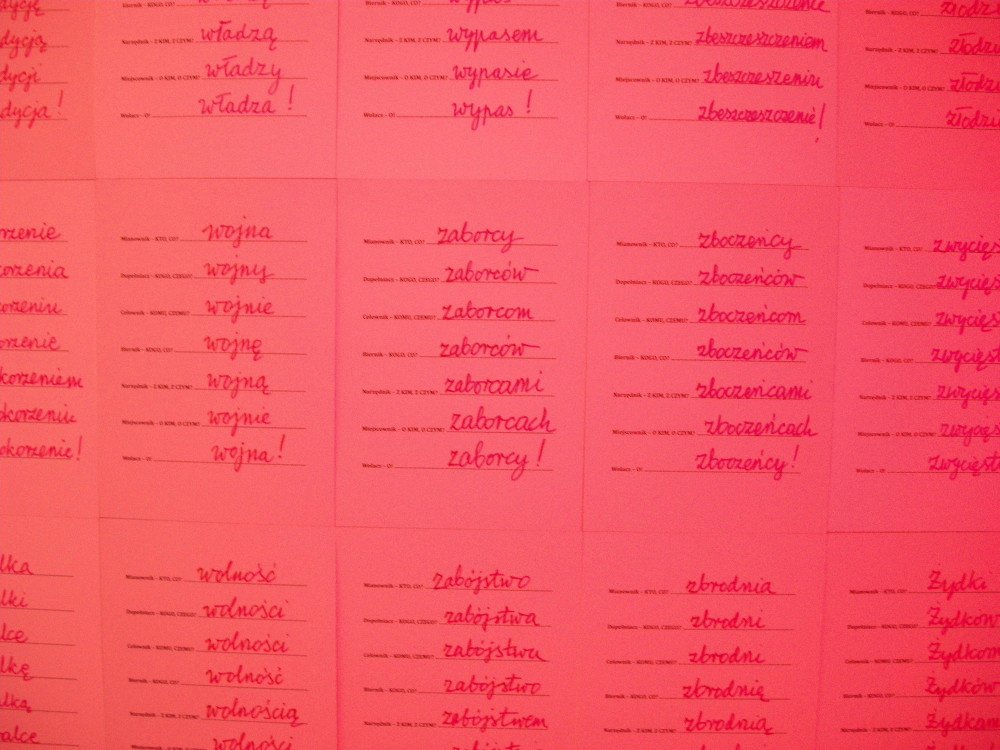 dycję
dycją
dycji
dycja!
Biernik - KOGO, CO?
Narzędnik - Z KIM, Z CZYM? władzą
Miejscownik - O KIM, O CZYM? władzy
Wołacz - O! władza!
Biernik - KOGO, CO? wypas
Narzędnik - Z KIM, Z CZYM? wypasem
Miejscownik - O KIM, O CZYM? wypasie
Wołacz - O! wypas!
Biernik - KOGO, CO? zbeszczeszczenie
Narzędnik - Z KIM, Z CZYM? zbeszczeszczeniem
Miejscownik - O KIM, O CZYM? zbeszczeszeniu
Wołacz - O! zbeszczeszczenie!
Biernik - KOGO, CO? złodzi
Narzędnik - Z KIM, Z CZYM? złodzi
Miejscownik - O KIM, O CZYM? złodzi
Wołacz - O! złodzi
rzenie
korzenia
korzeniu
orzenie
korzeniem
okorzeniu
okorzenie!
Mianownik - KTO, CO? wojna
Dopełniacz - KOGO, CZEGO? wojny
Celownik - KOMU, CZEMU? wojnie
Biernik - KOGO, CO? wojnę
Narzędnik - Z KIM, Z CZYM? wojną
Miejscownik - O KIM, O CZYM? wojnie
Wołacz - O! wojna!
Mianownik - KTO, CO? zaborcy
Dopełniacz - KOGO, CZEGO? zaborców
Celownik - KOMU, CZEMU? zaborcom
Biernik - KOGO, CO? zaborców
Narzędnik - Z KIM, Z CZYM? zaborcami
Miejscownik - O KIM, O CZYM? zaborcach
Wołacz - O! zaborcy!
Mianownik - KTO, CO? zboczeńcy
Dopełniacz - KOGO, CZEGO? zboczeńców
Celownik - KOMU, CZEMU? zboczeńcom
Biernik - KOGO, CO? zboczeńców
Narzędnik - Z KIM, Z CZYM? zboczeńcami
Miejscownik - O KIM, O CZYM? zboczeńcach
Wołacz - O! zboczeńcy!
Mianownik - KTO, CO? zwycięs
Dopełniacz - KOGO, CZEGO? zwycięs
Celownik - KOMU, CZEMU? zwycięs
Biernik - KOGO, CO? zwycięst
Narzędnik - Z KIM, Z CZYM? zwycięs
Miejscownik - O KIM, O CZYM? zwycięs
Wołacz - O! zwycięst
lka
lki
lce
lkę
lką
alce
Mianownik - KTO, CO? wolność
Dopełniacz - KOGO, CZEGO? wolności
Celownik - KOMU, CZEMU? wolności
Biernik - KOGO, CO? wolność
Narzędnik - Z KIM, Z CZYM? wolnością
Miejscownik - O KIM, O CZYM? wolności
Mianownik - KTO, CO? zabójstwo
Dopełniacz - KOGO, CZEGO? zabójstwa
Celownik - KOMU, CZEMU? zabójstwu
Biernik - KOGO, CO? zabójstwo
Narzędnik - Z KIM, Z CZYM? zabójstwem
Mianownik - KTO, CO? zbrodnia
Dopełniacz - KOGO, CZEGO? zbrodni
Celownik - KOMU, CZEMU? zbrodni
Biernik - KOGO, CO? zbrodnię
Narzędnik - Z KIM, Z CZYM? zbrodnią
Mianownik - KTO, CO? Żydki
Dopełniacz - KOGO, CZEGO? Żydków
Celownik - KOMU, CZEMU? Żydkom
Biernik - KOGO, CO? Żydków
Narzędnik - Z KIM, Z CZYM? Żydkam